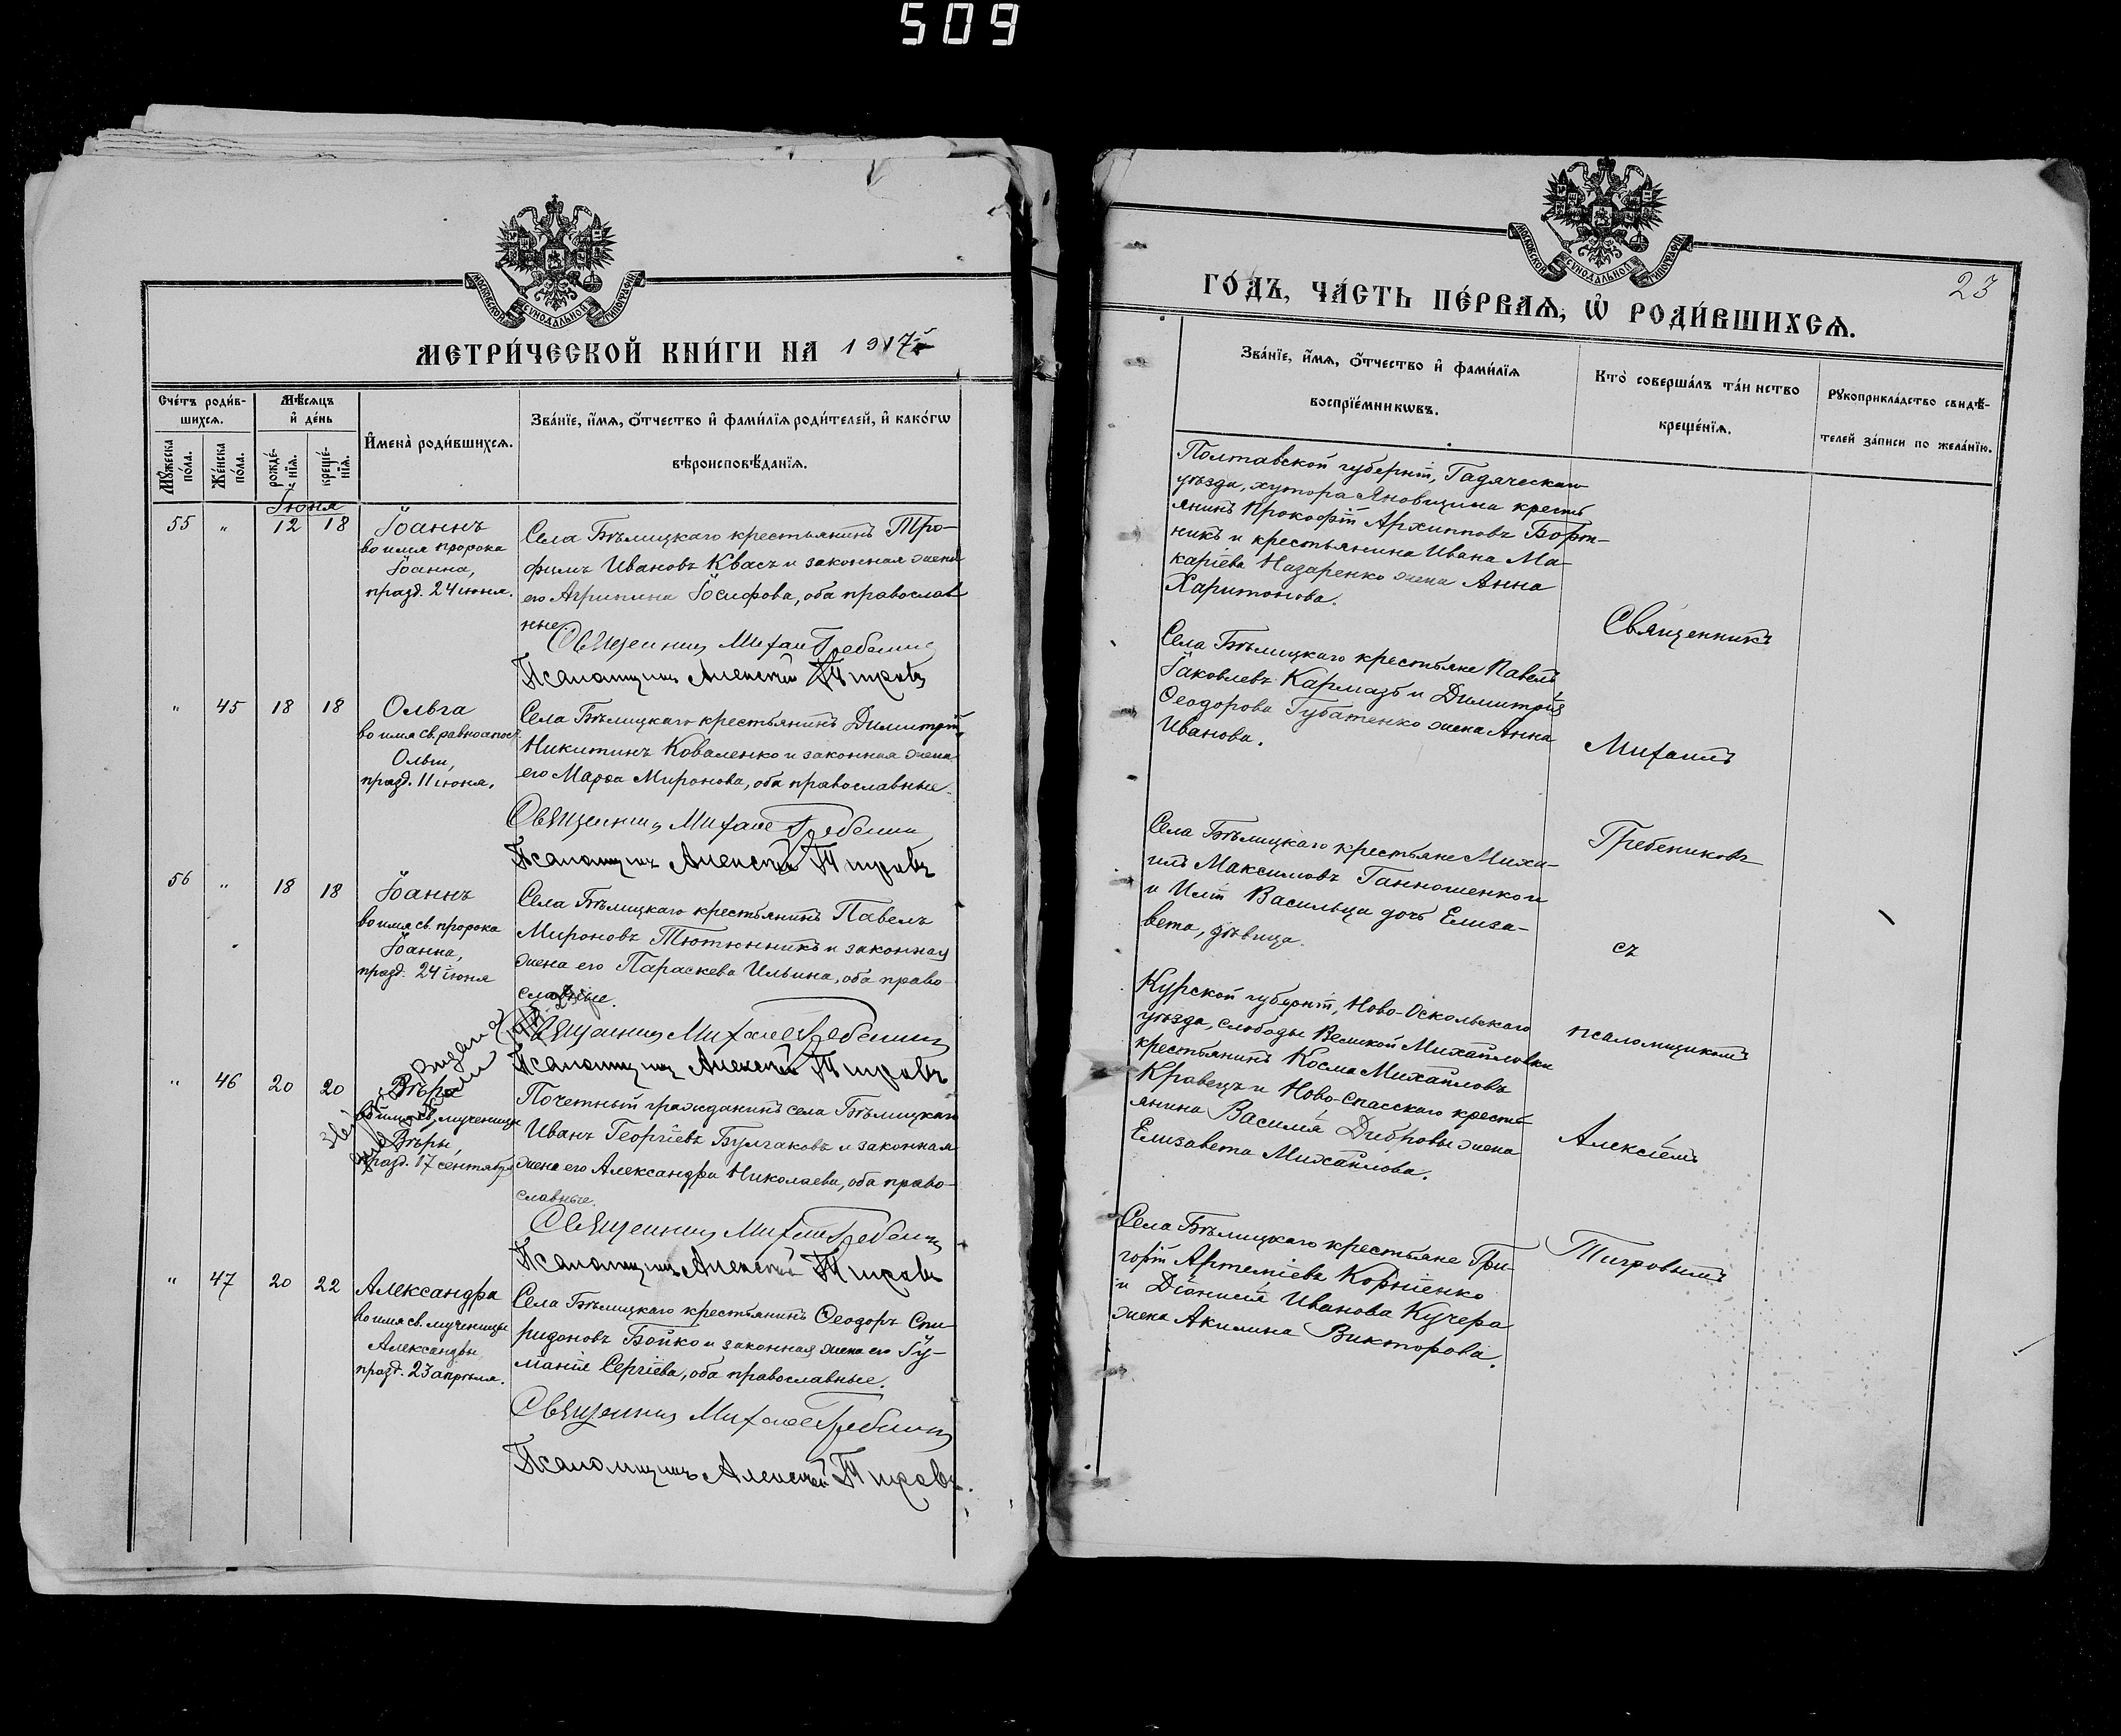 509
МОСКОВСКОЙ СѴНОДАЛЬНОЙ ТИПОГРАФІИ
МЕТРИ́ЧЕСКОЙ КНИ́ГИ НА 1917
Сче́тъ роди́в-
шихсѧ.
Мꙋ́жеска по́ла.
Же́нска по́ла.
Мѣ́сѧцъ
и҆ де́нь
рожде́-нїѧ.
креще́-нїѧ.
И҆мена̀ роди́вшихсѧ.
Зва́нїе, и҆́мѧ, о҆́тчество и҆ фами́лїѧ роди́телей, и҆ како́гѡ
вѣроисповѣ́данїѧ.
Іюня
55 " 12 18
Іоаннъ
во имя пророка
Іоанна,
празд. 24 іюня.
Села Бѣлицкаго крестьянинъ Тро-
фимъ Ивановъ Квасъ и законная жена
его Агрипина Іосифова, оба православ
ные.
Священникъ Михаилъ Гребениковъ
Псаломщикъ Алексѣй Тигровъ
" 45 18 18
Ольга
во имя св. равноапост.
Ольги,
празд. 11 іюня,
Села Бѣлицкаго крестьянинъ Димитрій
Никитинъ Коваленко и законная жена
его Марѳа Миронова, оба православные.
Священникъ Михаилъ Гребениковъ
Псаломщикъ Алексѣй Тигровъ
56 " 18 18
Іоаннъ
во имя св. пророка
Іоанна,
празд. 24 іюня
Села Бѣлицкаго крестьянинъ Павелъ
Мироновъ Тютюнникъ и законная
жена его Параскева Ильина, оба право-
славные.
Священникъ Михаилъ Гребениковъ
Псаломщикъ Алексѣй Тигровъ
" 46 20 20
Вѣра
во имя св. мученицы
Вѣры,
празд. 17 сентября
Почетный гражданинъ села Бѣлицкаго
Иванъ Георгіевъ Булгаковъ и законная
жена его Александра Николаева, оба право-
славные.
Священникъ Михаилъ Гребениковъ
Псаломщикъ Алексѣй Тигровъ
" 47 20 22
Александра
во имя св. мученицы
Александры
празд. 23 апрѣля.
Села Бѣлицкаго крестьянинъ Ѳеодоръ Спи-
ридоновъ Бойко и законная жена его Іу-
ліанія Сергіева, оба православные.
Священникъ Михаилъ Гребениковъ
Псаломщикъ Алексѣй Тигровъ.
МОСКОВСКОЙ СѴНОДАЛЬНОЙ ТИПОГРАФІИ
23
ГО́ДЪ, ЧА́СТЬ ПЕ́РВАѦ, Ѡ҆ РОДИ́ВШИХСѦ.
Зва́нїе, и҆́мѧ, о҆́тчество и҆ фами́лїѧ
воспрїе́мникѡвъ.
Кто̀ соверша́лъ та́инство
креще́нїѧ.
Рꙋкоприкла́дство свидѣ́-
телей за́писи по жела́нїю.
Полтавской губерніи, Гадяческаго
уѣзда, хутора Яновщина кресть
янинъ Прокофій Архиповъ Борт-
никъ и крестьянина Ивана Ма-
каріева Назаренко жена Анна
Харитонова.
Села Бѣлицкаго крестьяне Павелъ
Іаковлевъ Кармазъ и Димитрія
Ѳеодорова Губатенко жена Анна
Иванова.
Села Бѣлицкаго крестьяне Миха-
илъ Максимовъ Ганношенко и
и Иліи Васильца дочь Елиза-
вета, дѣвица.
Курской губерніи, Ново-Оскольскаго
уѣзда, слободы Великой Михайловки
крестьянинъ Косма Михайловъ
Кравецъ и Ново-Спасскаго кресть
янина Василія Дибровы жена
Елизавета Михайлова.
Села Бѣлицкаго крестьяне Гри-
горій Артеміевъ Корніенко
и Діонисія Иванова Кучера
жена Акилина Викторова.
Священникъ
Михаилъ
Гребениковъ
съ
псаломщикомъ
Алексіемъ
Тигровымъ